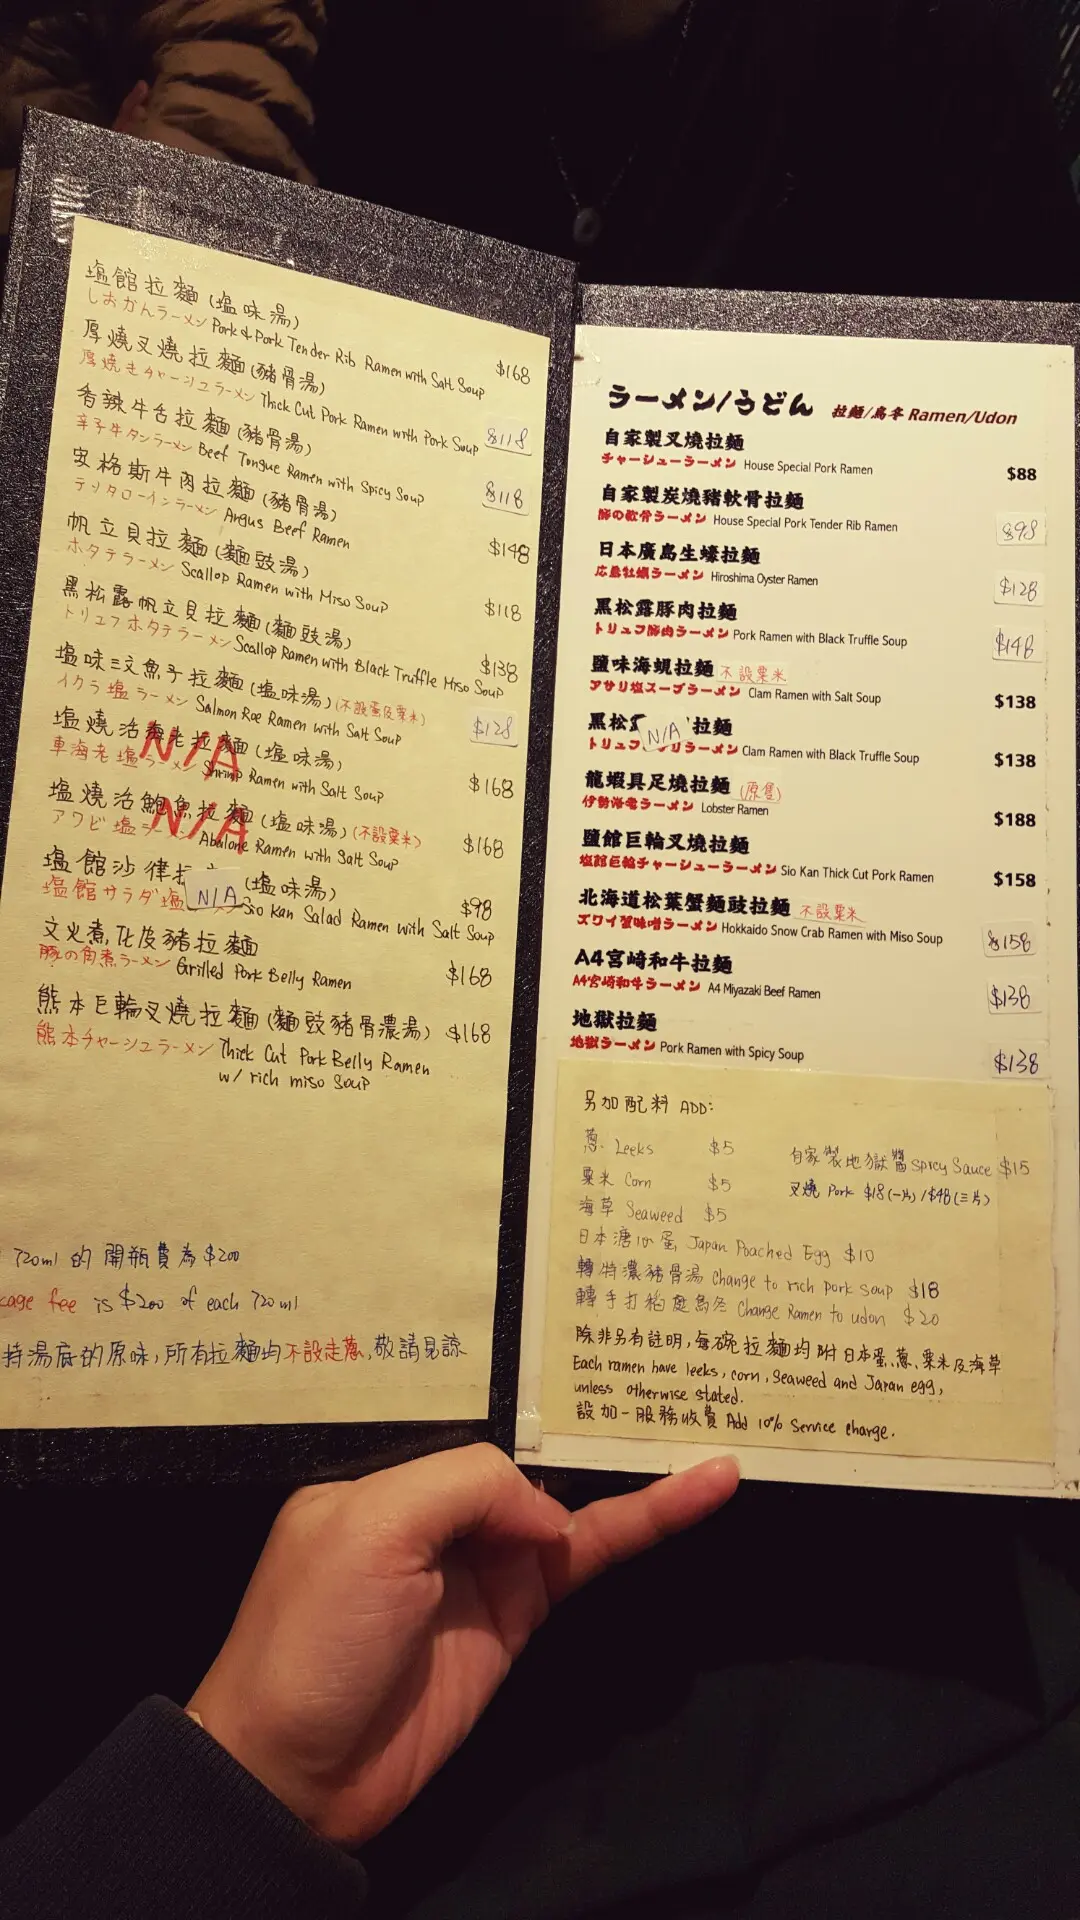 塩館拉麵 (塩味湯)
しおかんラーメン Pork & Pork Tender Rib Ramen with Salt Soup $168
厚燒叉燒拉麵 (豬骨湯)
厚焼きチャーシュラーメン Thick Cut Pork Ramen with Pork Soup $118
香辣牛舌拉麵 (豬骨湯)
辛子牛タンラーメン Beef Tongue Ramen with Spicy Soup $118
安格斯牛肉拉麵 (豬骨湯)
テンタローインラーメン Angus Beef Ramen $148
帆立貝拉麵 (麵豉湯)
ホタテラーメン Scallop Ramen with Miso Soup $118
黑松露帆立貝拉麵 (麵豉湯)
トリュフホタテラーメン Scallop Ramen with Black Truffle Miso Soup $138
塩味三文魚子拉麵 (塩味湯) (不設蛋及粟米)
イクラ塩ラーメン Salmon Roe Ramen with Salt Soup $128
塩燒活海老拉麵 (塩味湯)
N/A
車海老塩ラーメン Shrimp Ramen with Salt Soup $168
塩燒活鮑魚拉麵 (塩味湯) (不設粟米)
N/A
アワビ塩ラーメン Abalone Ramen with Salt Soup $168
塩館沙律拉 (塩味湯)
N/A
塩館サラダ塩 Sio Kan Salad Ramen with Salt Soup $98
文火煮化皮豬拉麵
豚の角煮ラーメン Grilled Pork Belly Ramen $168
熊本巨輪叉燒拉麵 (麵豉豬骨濃湯) $168
熊本チャーシュラーメン Thick Cut Pork Belly Ramen
w/ rich miso soup
720ml 的 開瓶費為 $200
kage fee is $200 of each 720ml
持湯底的原味,所有拉麵均不設走蔥,敬請見諒
ラーメン/うどん 拉麵/烏冬 Ramen/Udon
自家製叉燒拉麵
チャーシューラーメン House Special Pork Ramen $88
自家製炭燒豬軟骨拉麵
豚の軟骨ラーメン House Special Pork Tender Rib Ramen $98
日本廣島生蠔拉麵
広島牡蠣ラーメン Hiroshima Oyster Ramen $128
黑松露豚肉拉麵
トリュフ豚肉ラーメン Pork Ramen with Black Truffle Soup $148
鹽味海蜆拉麵 不設粟米
アサリ塩スープラーメン Clam Ramen with Salt Soup $138
黑松 N/A 拉麵
トリュフ リラーメン Clam Ramen with Black Truffle Soup $138
龍蝦具足燒拉麵 (原隻)
伊勢海老ラーメン Lobster Ramen $188
鹽館巨輪叉燒拉麵
塩館巨輪チャーシューラーメン Sio Kan Thick Cut Pork Ramen $158
北海道松葉蟹麵豉拉麵 不設粟米
ズワイ蟹味噌ラーメン Hokkaido Snow Crab Ramen with Miso Soup $158
A4宮崎和牛拉麵
A4宮崎和牛ラーメン A4 Miyazaki Beef Ramen $138
地獄拉麵
地獄ラーメン Pork Ramen with Spicy Soup $138
另加配料 ADD:
蔥 Leeks $5
自家製地獄醬 Spicy Sauce $15
粟米 Corn $5
叉燒 Pork $18(一片) / $48(三片)
海草 Seaweed $5
日本溏心蛋 Japan Poached Egg $10
轉特濃豬骨湯 Change to rich pork soup $18
轉手打稻庭烏冬 Change Ramen to udon $20
除非另有註明,每碗拉麵均附日本蛋、蔥、粟米及海草
Each ramen have leeks, corn, seaweed and Japan egg,
unless otherwise stated.
設加一服務收費 Add 10% service charge.